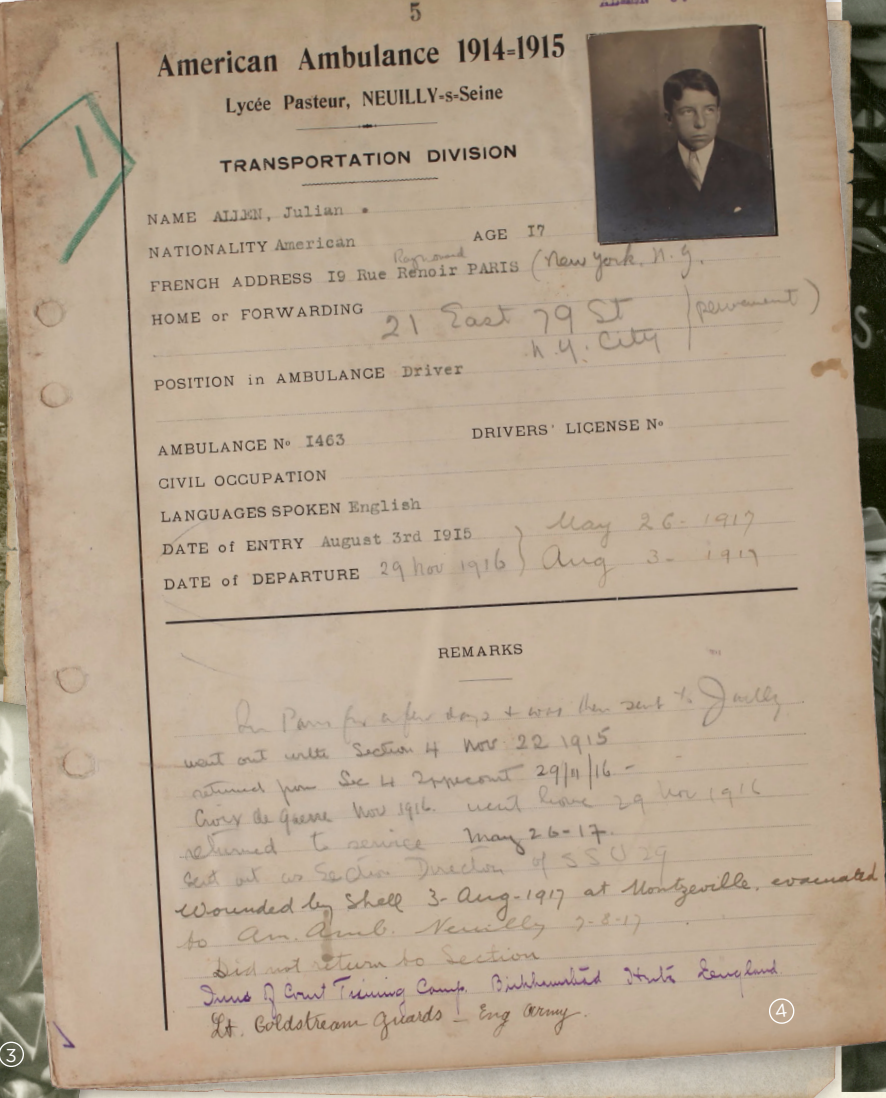 5
American Ambulance 1914=1915
Lycée Pasteur, NEUILLY-s-Seine
TRANSPORTATION DIVISION
NAME ALLEN, Julian
NATIONALITY American AGE I7
Raynouard
FRENCH ADDRESS I9 Rue Renoir PARIS (New York. N.Y.
HOME or FORWARDING 21 East 79 St (permanent)
N.Y. City
POSITION in AMBULANCE Driver
AMBULANCE No I463 DRIVERS' LICENSE No
CIVIL OCCUPATION
LANGUAGES SPOKEN English
DATE of ENTRY August 3rd I9I5 } May 26- 1917
DATE of DEPARTURE 29 Nov 1916 } Aug 3- 1917
REMARKS
In Paris for a few days & was then sent to Juilly
went out with Section 4 Nov 22 1915
returned from Sec 4 Ippecourt 29/11/16 -
Croix de Guerre Nov 1916. went home 29 Nov 1916
returned to service May 26-17.
Sent out as Section Director of SSU 29
Wounded by Shell 3-Aug-1917 at Montzeville. evacuated
to Am. Amb. Neuilly 7-8-17
Did not return to Section
Inns of Court Training Camp. Herts England
Lt. Coldstream Guards - Eng Army.
3
4